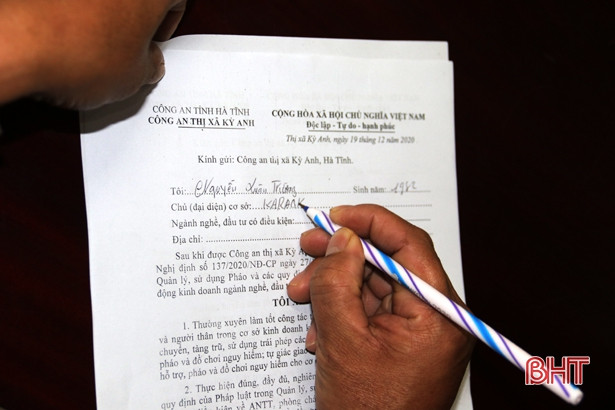 CÔNG AN TỈNH HÀ TĨNH
CÔNG AN THỊ XÃ KỲ ANH
CỘNG HÒA XÃ HỘI CHỦ NGHĨA VIỆT NAM
Độc lập - Tự do - hạnh phúc
Thị xã Kỳ Anh, ngày 19 tháng 12 năm 2020
Kính gửi: Công an thị xã Kỳ Anh, Hà Tĩnh.
Tôi: Nguyễn Xuân Trường Sinh năm: 1982
Chủ (đại diện) cơ sở: KARAOK
Ngành nghề, đầu tư có điều kiện:
Địa chỉ:
Sau khi được Công an thị xã Kỳ
Nghị định số 137/2020/NĐ-CP ngày 27
Quản lý, sử dụng Pháo và các quy
động kinh doanh ngành nghề, đầu
TÔI
1. Thường xuyên làm tốt công tác
và người thân trong cơ sở kinh doanh
chuyển, tàng trữ, sử dụng trái phép các
pháo và đồ chơi nguy hiểm; tự giác giao
hỗ trợ, pháo và đồ chơi nguy hiểm cho
2. Thực hiện đúng, đầy đủ, nghiêm
quy định của Pháp luật trong Quản lý, sử
kiện về ANTT, phòng
BHT